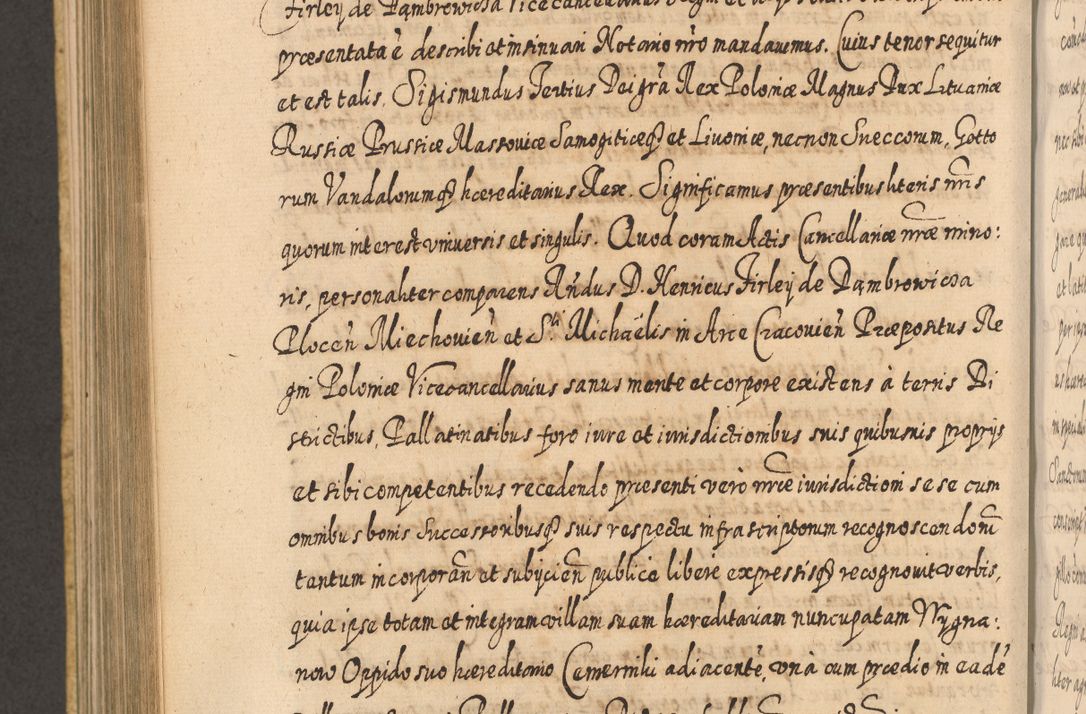 Firley de Dambrowicza Vicecancellarius Regni
præsentatā ē describi et insinuari Notario nr̄o mandavimus. Cuius tenor sequitur
et est talis. Sigismundus Tertius Dei grā Rex Poloniæ Magnus Dux Lituaniæ
Russiæ Prussiæ Massoviæ Samogitiæqȝ et Livoniæ, necnon Sueccorum, Gotto
rum Vandalorumqȝ hæreditarius Rex. Significamus præsentibus literis nr̄is
quorum interest universis et singulis. Quod coram Actis Cancellariæ nr̄æ mino:
ris, personaliter comparens Rn̄dus D. Henricus Firley de Dambrowicza
Plocen̄ Miechovien̄ et S.ti Michaëlis in Arce Cracovien̄ Præpositus Re
gni Poloniæ Vicecancellarius sanus mente et corpore existens à terris Di
strictibus, Pallatinatibus foro iure et iurisdictionibus suis quibusuis proprijs
et sibi competentibus recedendo præsenti vero nr̄æ iurisdictioni se se cum
omnibus bonis Successoribusqȝ suis respectu infrascriptorum recognoscendorū
tantum incorporan̄ et subijcien̄ publice libere expressisqȝ recognovit verbis,
quia ipse totam et integram villam suam hæreditariam nuncupatam Wygna:
now Oppido suo hæreditario Czemerniki adiacentē, unà cum prædio in eadē